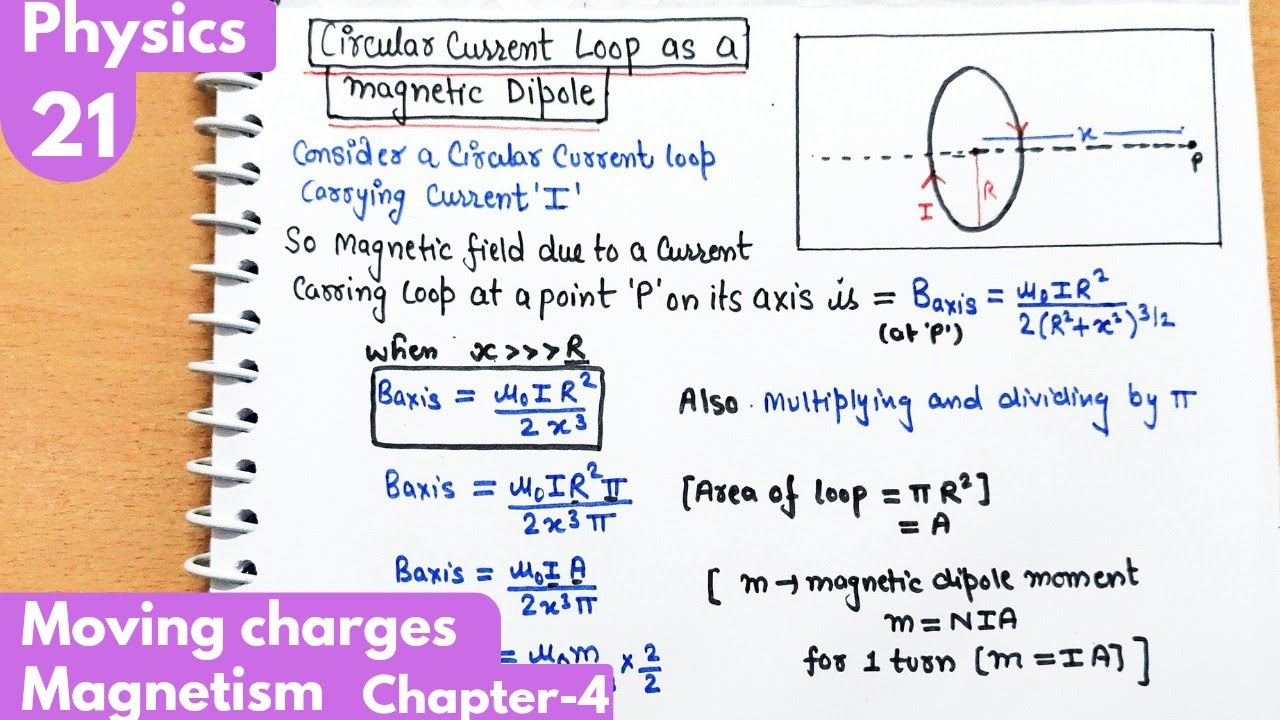 Physics
21
Circular Current Loop as a
magnetic Dipole
Consider a Circular Current loop
Carrying Current 'I'
So Magnetic field due to a Current
Carring Loop at a point 'P' on its axis is = Baxis = μ₀IR² / 2(R²+x²)^3/2
(at 'P')
x
P
R
I
when x>>>R
Baxis = μ₀IR² / 2x³
Also Multiplying and dividing by π
Baxis = μ₀IR²π / 2x³π
[Area of loop = πR²]
= A
Baxis = μ₀IA / 2x³π
[ m → magnetic dipole moment
m = NIA
for 1 turn [m = IA] ]
= μ₀m × 2/2
Moving charges
Magnetism Chapter-4